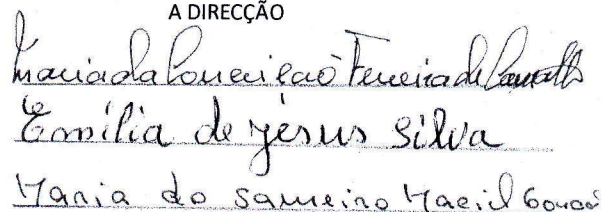 A DIRECÇÃO
Maria da Conceição Ferreira de Carvalho
Emília de Jesus Silva
Maria do Sameiro Maciel